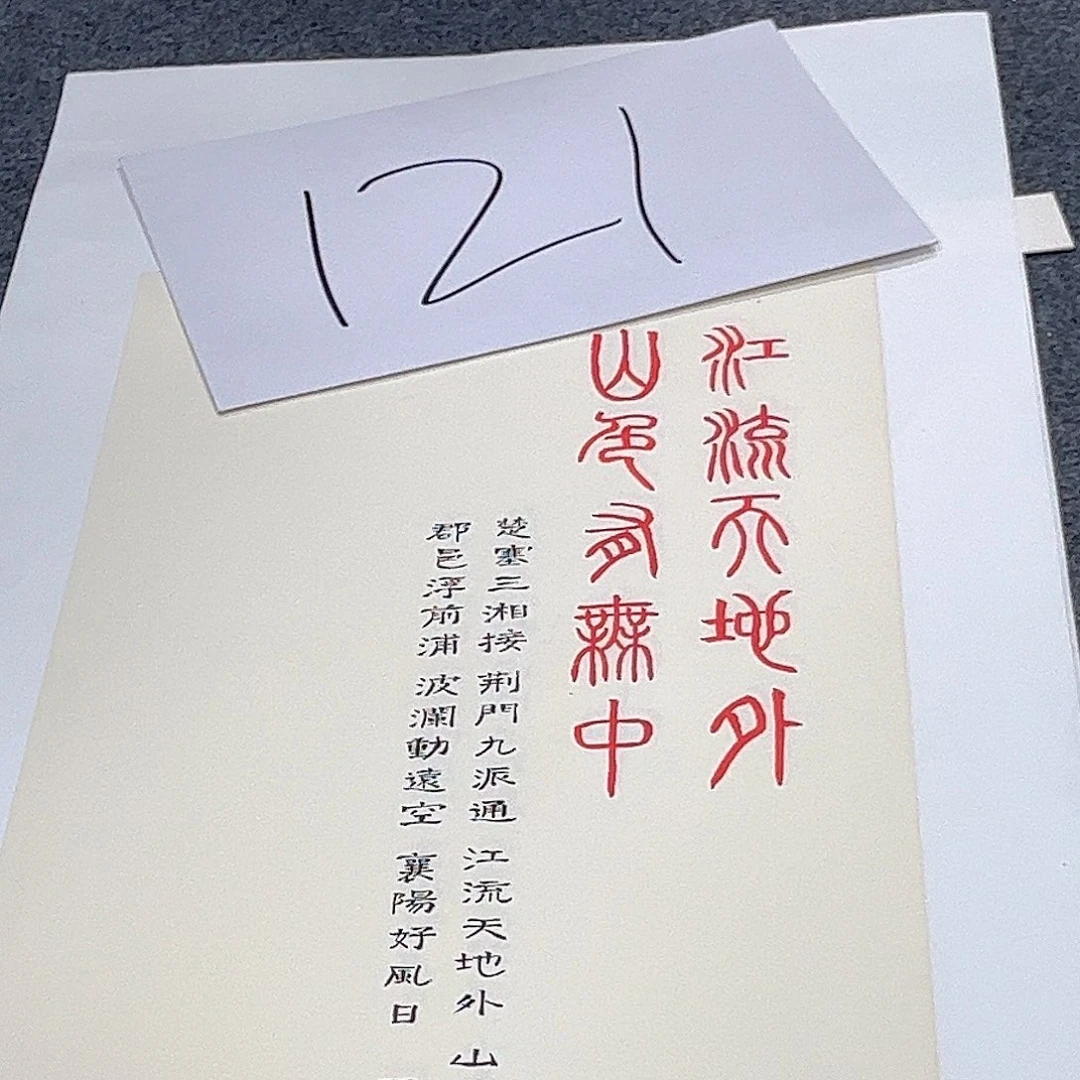 121
江流天地外
山色有無中
楚塞三湘接 荆門九派通 江流天地外 山
郡邑浮前浦 波瀾動遠空 襄陽好風日